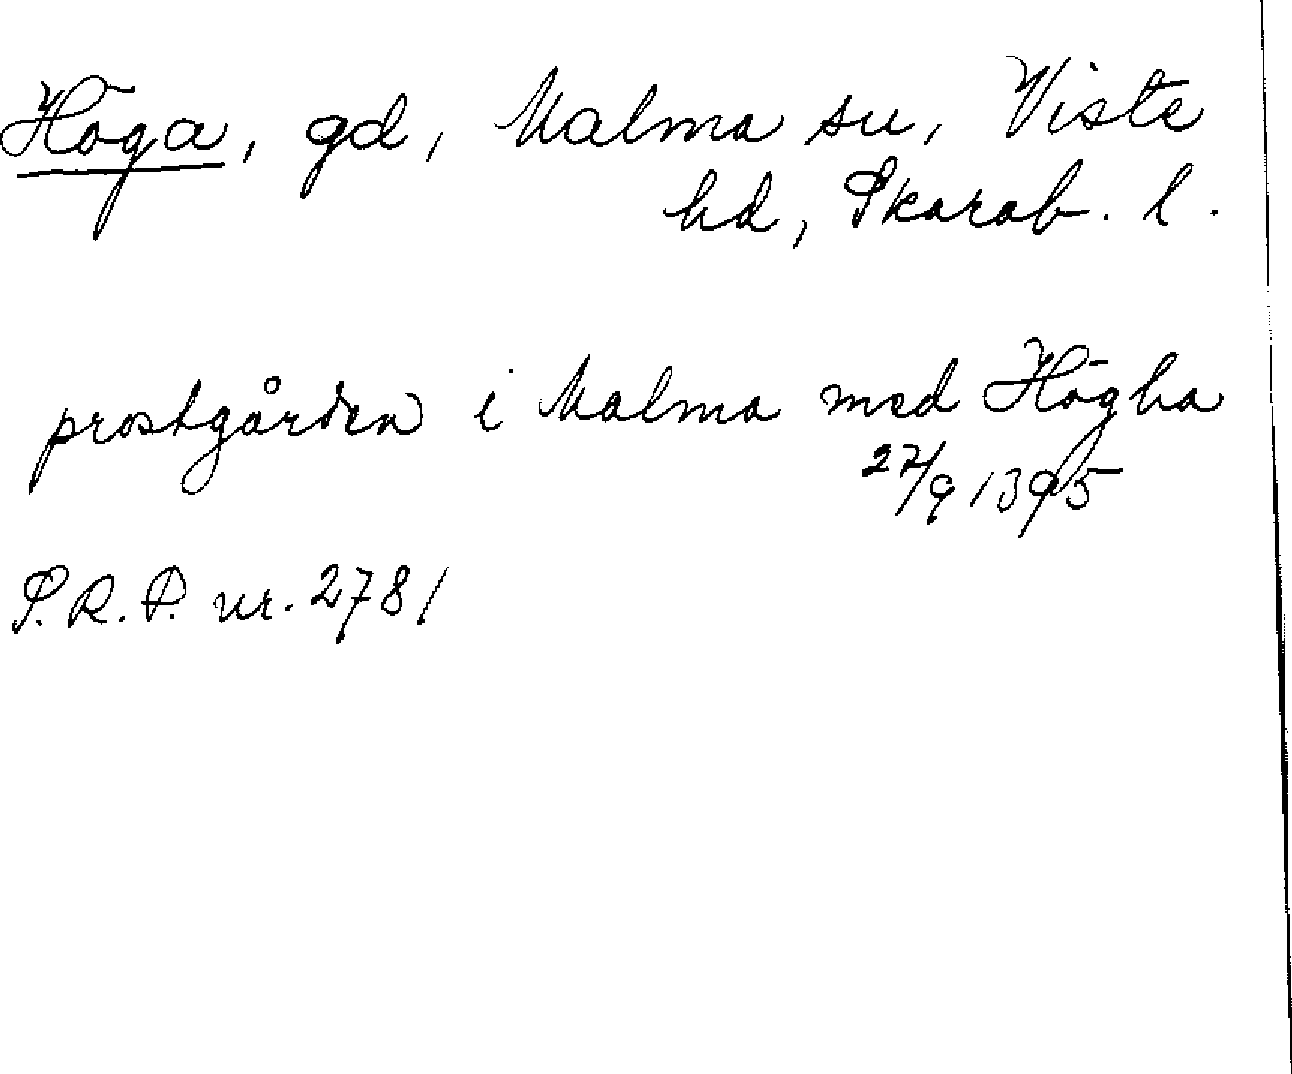 Höga, gd, Malma sn, Viste
hd, Skarab. l.
prostgården i Malma med Högha
27/9 1395
S.R.P. nr. 2781